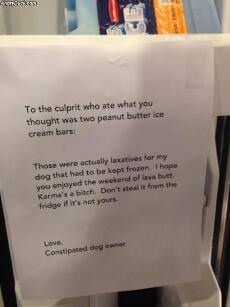 To the culprit who ate what you
thought was two peanut butter ice
cream bars:
Those were actually laxatives for my
dog that had to be kept frozen. I hope
you enjoyed the weekend of lava butt.
Karma's a bitch. Don't steal it from the
fridge if it's not yours.
Love,
Constipated dog owner